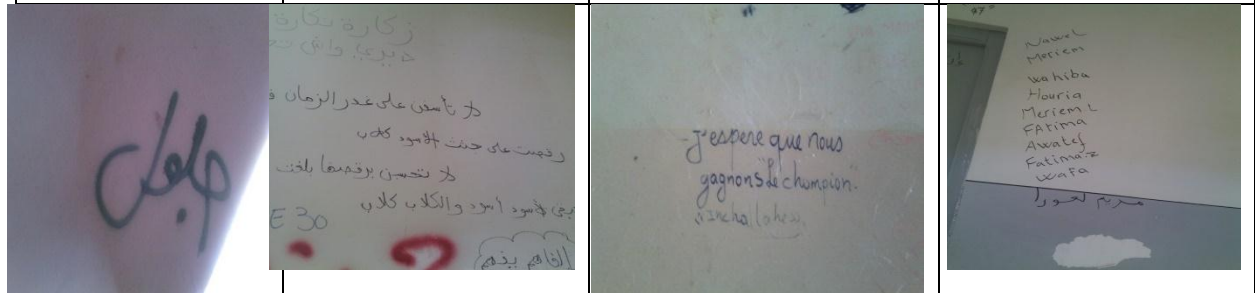 زكارة بكارة
ديري واش
لا تأسفن على غدر الزمان
رقصت على جثث الأسود كلاب
لا تحسبن برقصها بلغت
الأسود أسود والكلاب كلاب
E 30
الفاهم يفهم
j'espere que nous
gagnons "le champion.
Nawel
Meriem
wahiba
Houria
Meriem L
FAtima
Awatef
Fatima z
wafa
مريم لعورا